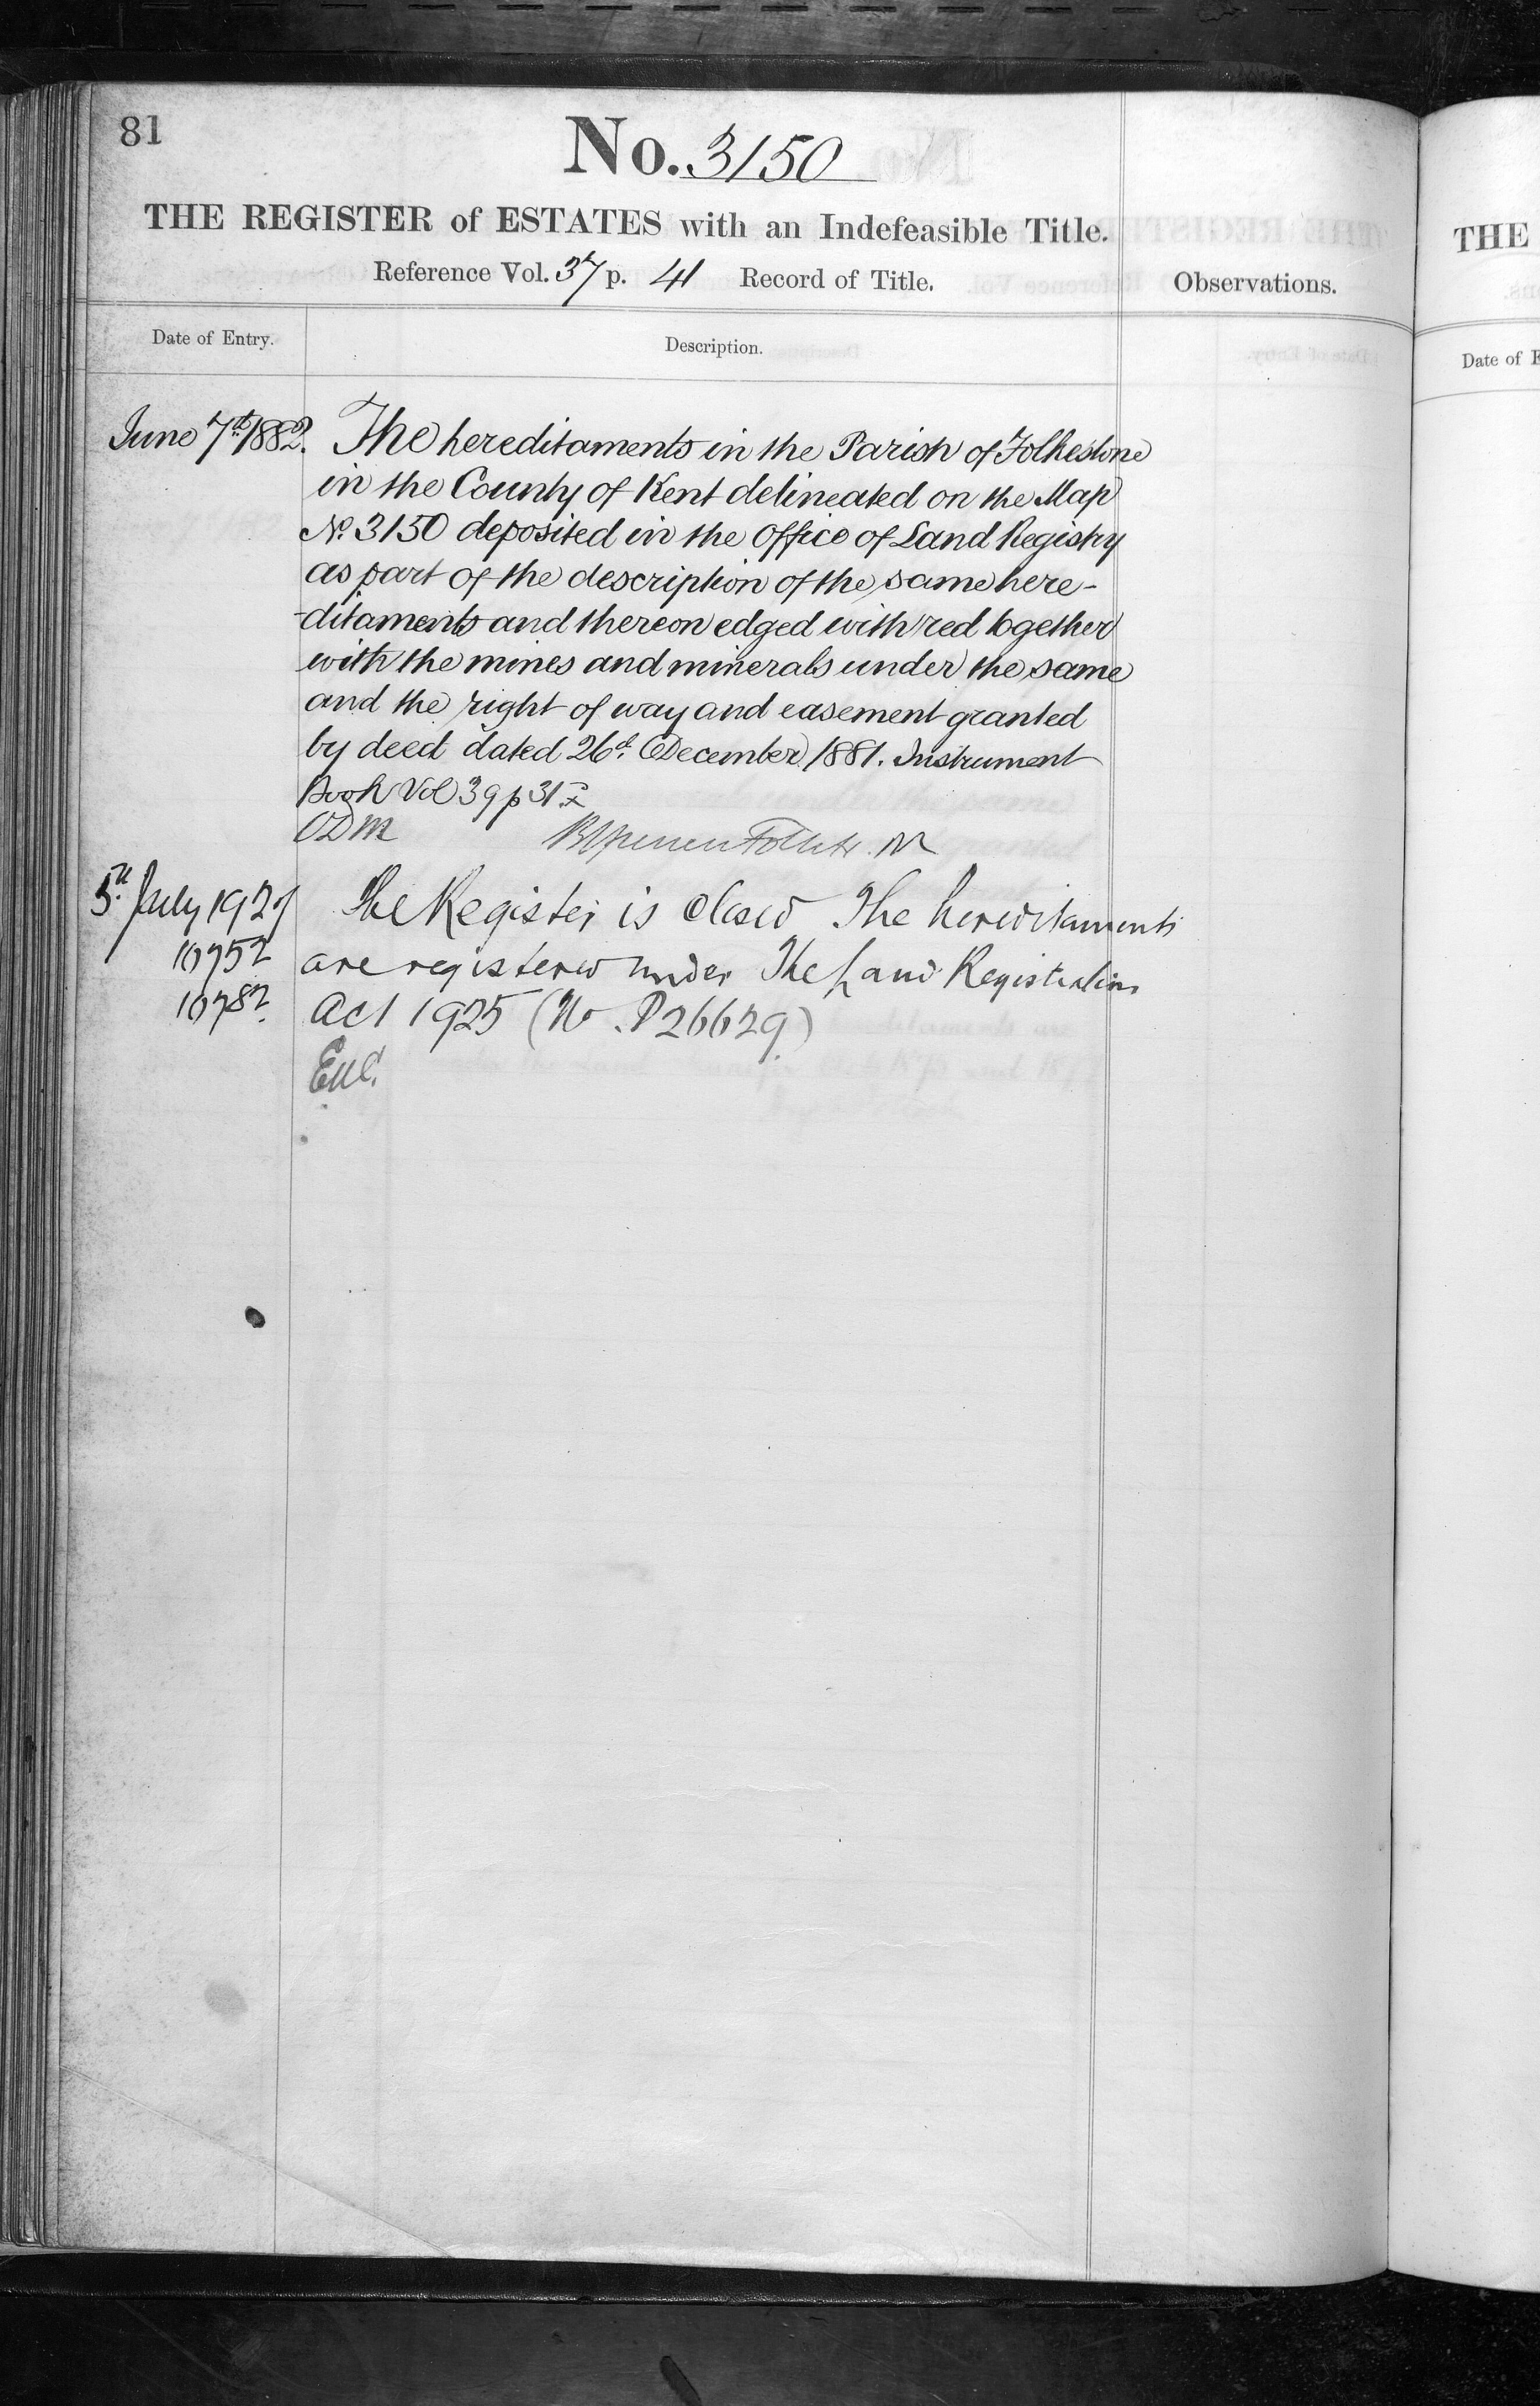 81
No. 3150
THE REGISTER of ESTATES with an Indefeasible Title.
Reference Vol. 37 p. 41 Record of Title.
Observations.
Date of Entry.
Description.
June 7th 1882.
The hereditaments in the Parish of Folkestone
in the County of Kent delineated on the Map
No. 3150 deposited in the Office of Land Registry
as part of the description of the same here-
-ditaments and thereon edged with red together
with the mines and minerals under the same
and the right of way and easement granted
by deed dated 26th December 1881. Instrument
Book Vol 39 p 31
5th July 1927
The Register is closed The hereditaments
are registered under The Land Registration
Act 1925 (No. P26629)
THE
Date of